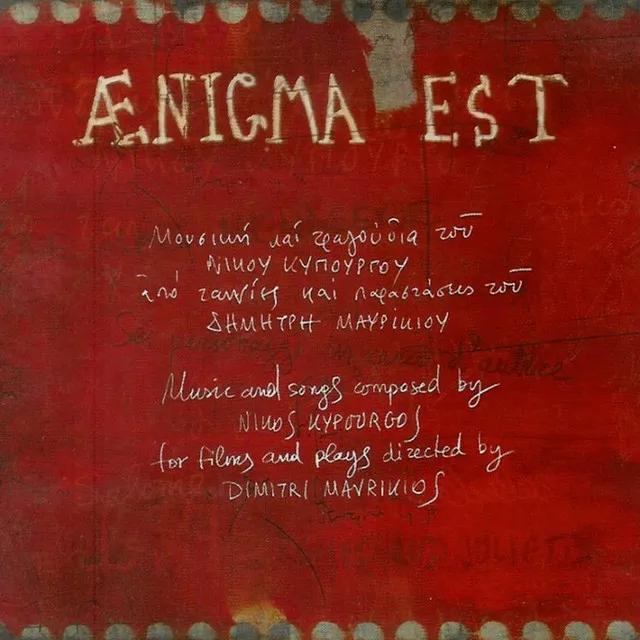 ÆNIGMA EST
Μουσική καί τραγούδια τοῦ
ΝΙΚΟΥ ΚΥΠΟΥΡΓΟΥ
ἀπό ταινίες καί παραστάσεις τοῦ
ΔΗΜΗΤΡΗ ΜΑΥΡΙΚΙΟΥ
Sei personaggi in cerca d'autore
Music and songs composed by
NIKOS KYPOURGOS
for films and plays directed by
DIMITRI MAVRIKIOS
JULIETTE